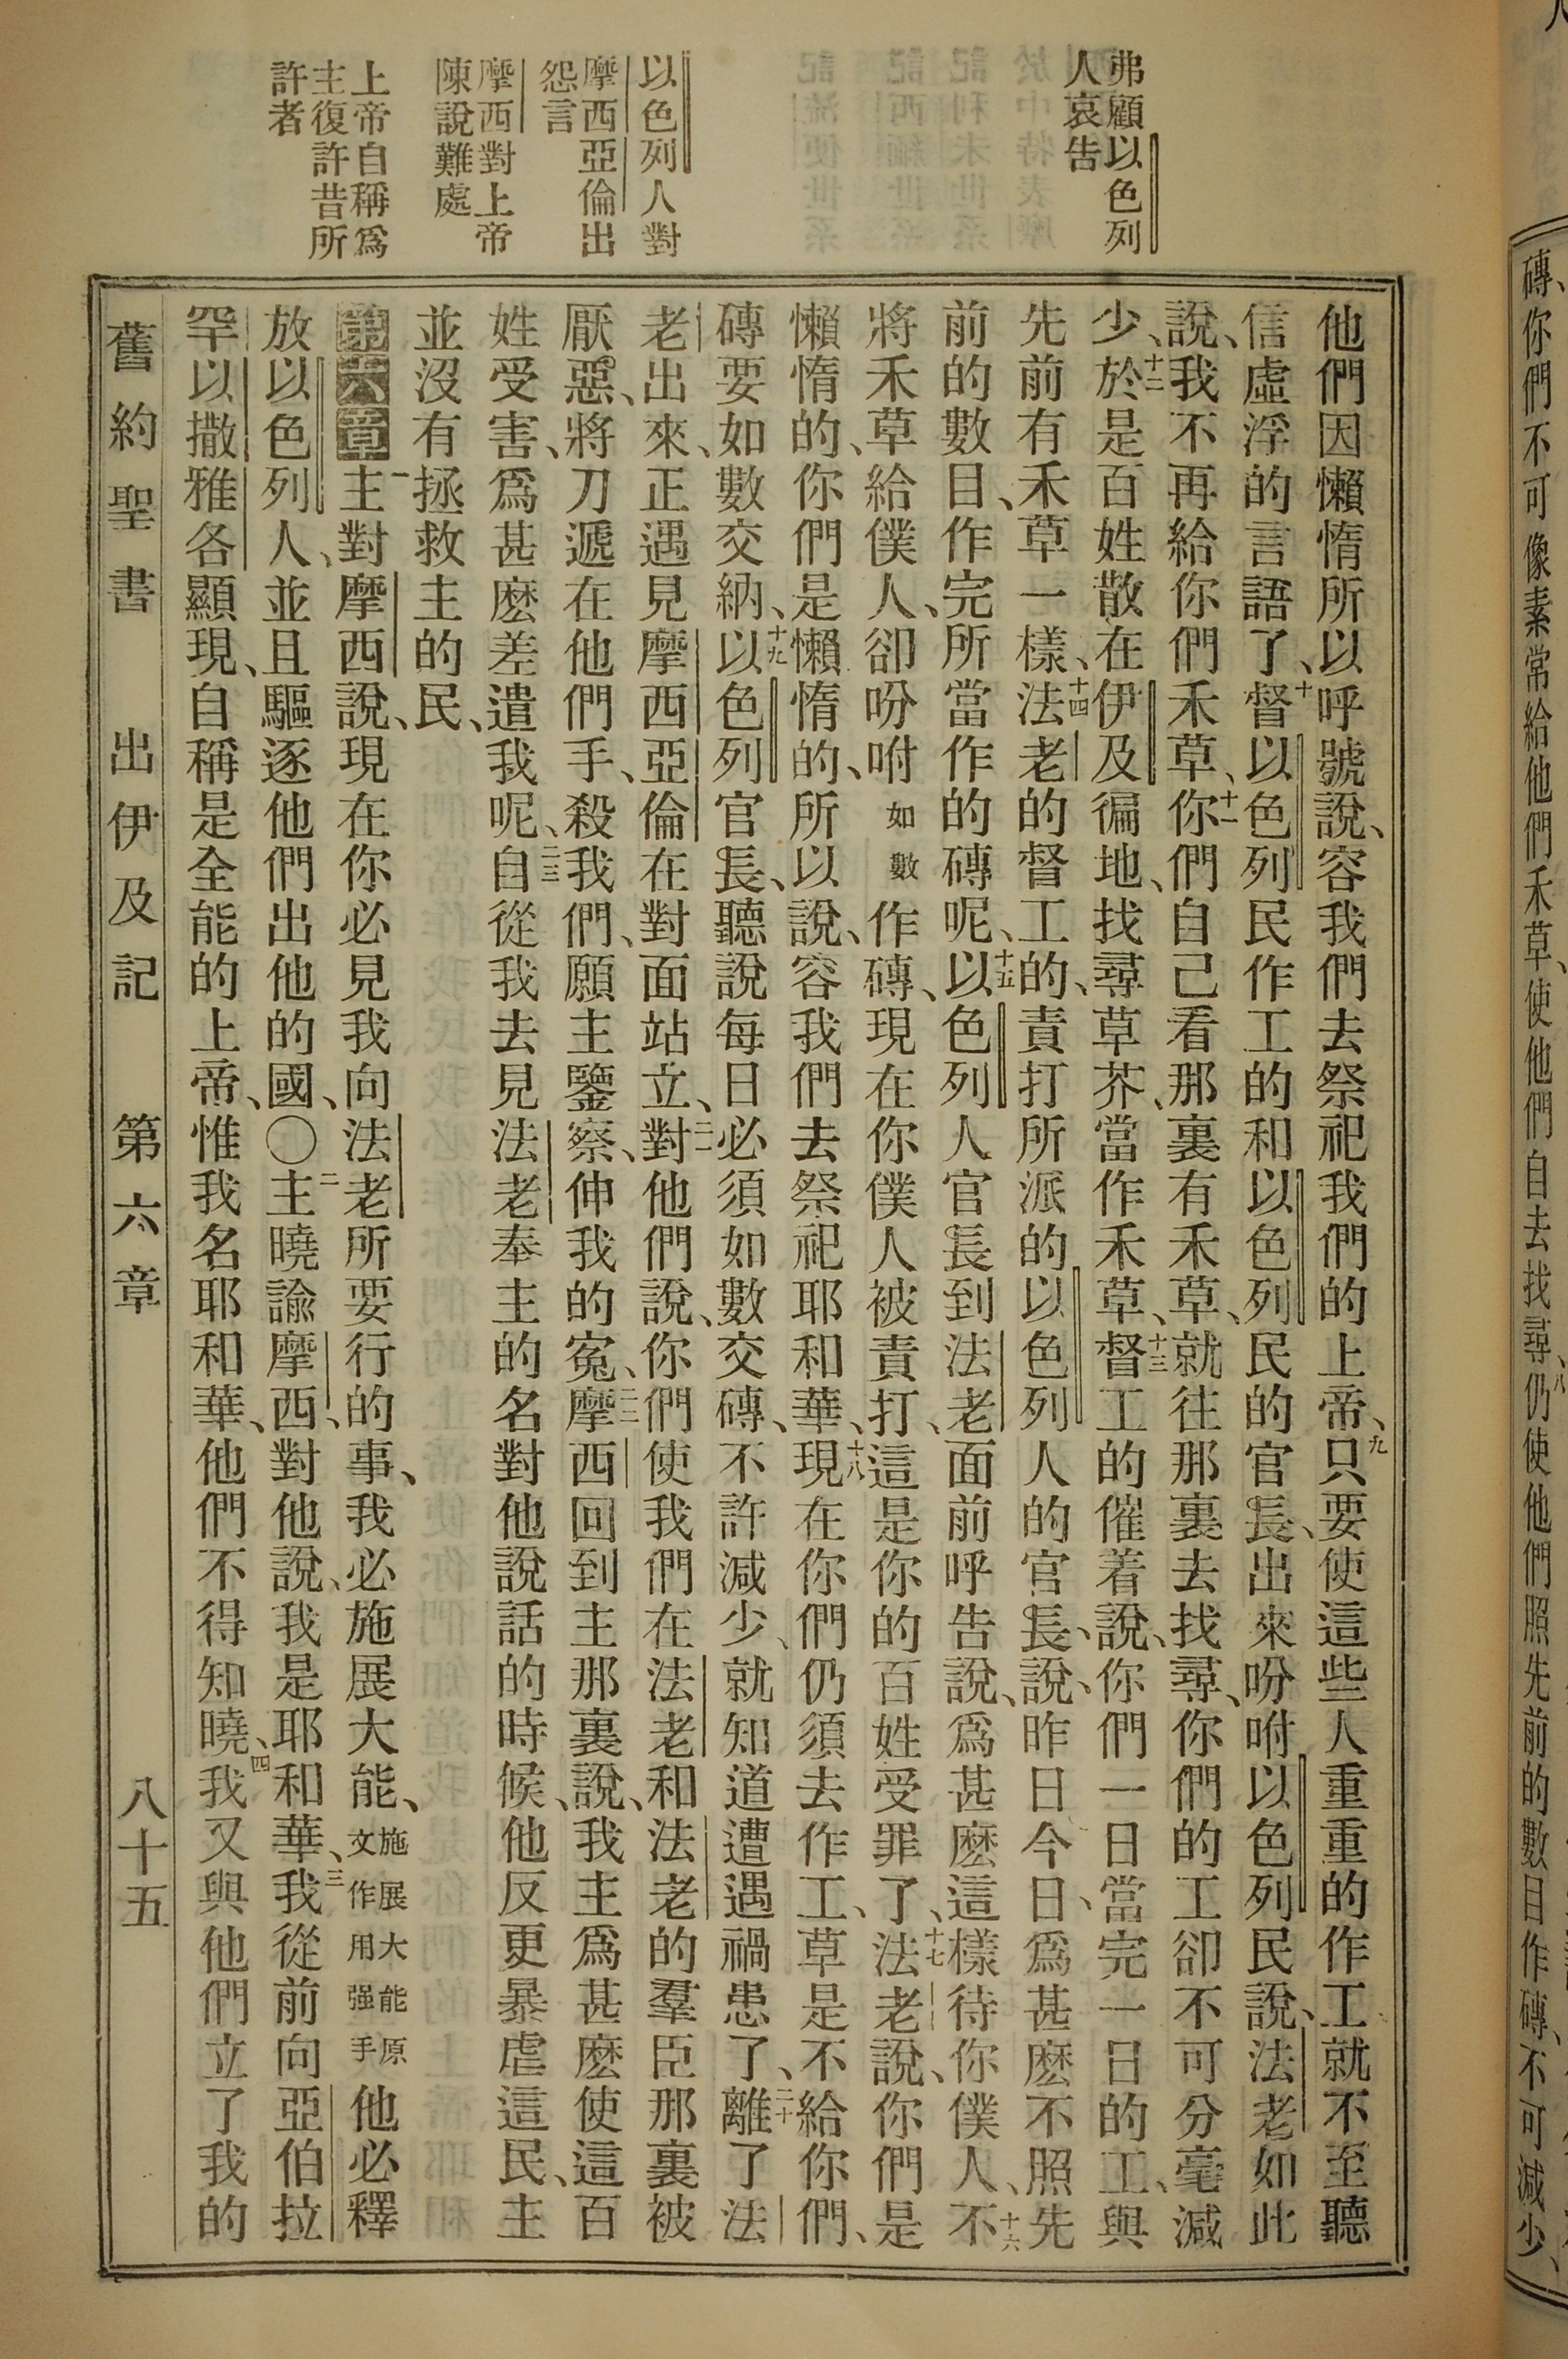 弗顧以色列
人哀告
以色列人對
摩西亞倫出
怨言
摩西對上帝
陳說難處
上帝自稱爲
主復許昔所
許者
他們因懶惰所以呼號說、容我們去祭祀我們的上帝、九只要使這些人重重的作工就不至聽
信虛浮的言語了、十督以色列民作工的和以色列民的官長、出來吩咐以色列民說、法老如此
說、我不再給你們禾草、十一你們自己看那裏有禾草、就往那裏去找尋、你們的工卻不可分毫減
少、十二於是百姓散在伊及徧地、找尋草芥、當作禾草、十三督工的催着說、你們一日當完一日的工、與
先前有禾草一樣、十四法老的督工的、責打所派的以色列人的官長、說、昨日今日、爲甚麽不照先
前的數目、作完所當作的磚呢、十五以色列人官長到法老面前呼告說、爲甚麽這樣待你僕人、十六不
將禾草給僕人、卻吩咐如數作磚、現在你僕人被責打、這是你的百姓受罪了、十七法老說、你們是
懶惰的、你們是懶惰的、所以說、容我們去祭祀耶和華、十八現在你們仍須去作工、草是不給你們、
磚要如數交納、十九以色列官長、聽說每日必須如數交磚、不許減少、就知道遭遇禍患了、二十離了法
老出來、正遇見摩西亞倫在對面站立、二一對他們說、你們使我們在法老和法老的羣臣那裏被
厭惡、將刀遞在他們手、殺我們、願主鑒察、伸我的寃、二二摩西回到主那裏說、我主爲甚麽使這百
姓受害、爲甚麽差遣我呢、二三自從我去見法老奉主的名對他說話的時候、他反更暴虐這民、主
並沒有拯救主的民、
第六章一主對摩西說、現在你必見我向法老所要行的事、我必施展大能、施展大能原文作用强手他必釋
放以色列人、並且驅逐他們出他的國、〇二主曉諭摩西、對他說、我是耶和華、三我從前向亞伯拉
罕以撒雅各顯現、自稱是全能的上帝、惟我名耶和華、他們不得知曉、四我又與他們立了我的
舊約聖書　出伊及記　第六章　八十五
磚、你們不可像素常給他們禾草、使他們自去找尋、八仍使他們照先前的數目作磚、不可減少、